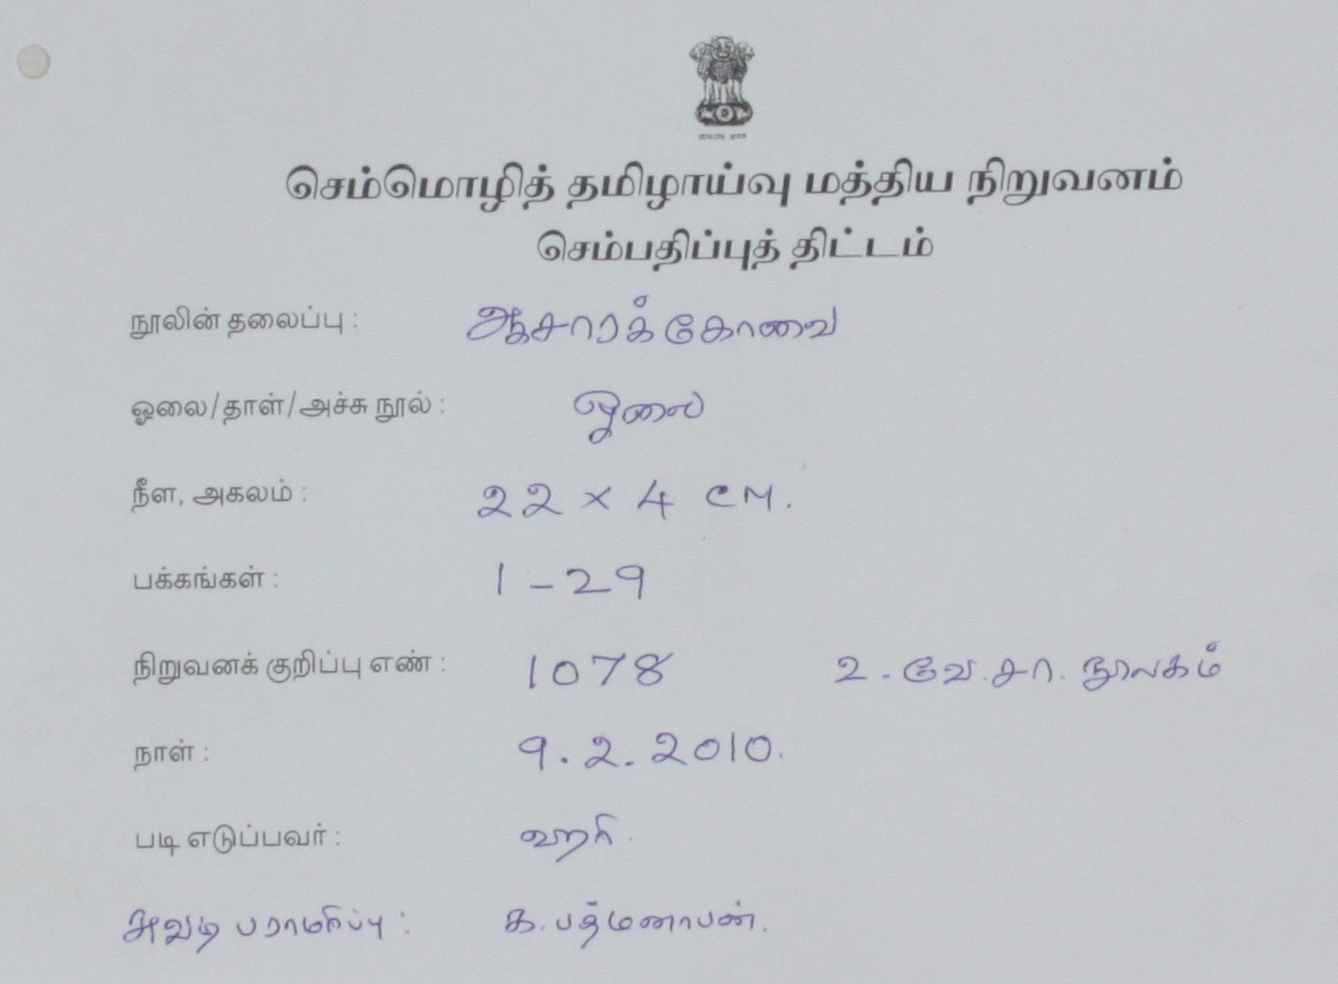 செம்மொழித் தமிழாய்வு மத்திய நிறுவனம்
செம்பதிப்புத் திட்டம்
நூலின் தலைப்பு : ஆசாரக்கோவை
ஓலை/தாள்/அச்சு நூல் : ஓலை
நீள, அகலம் : 22 x 4 CM.
பக்கங்கள் : 1-29
நிறுவனக் குறிப்பு எண் : 1078 உ.வே.சா. நூலகம்
நாள் : 9.2.2010.
படி எடுப்பவர் : ஹரி.
சுவடி பராமரிப்பு : க.பத்மனாபன்.